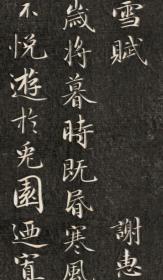 雪賦 謝惠
歲將暮時既昏寒風
不悅游於兎園迺賓